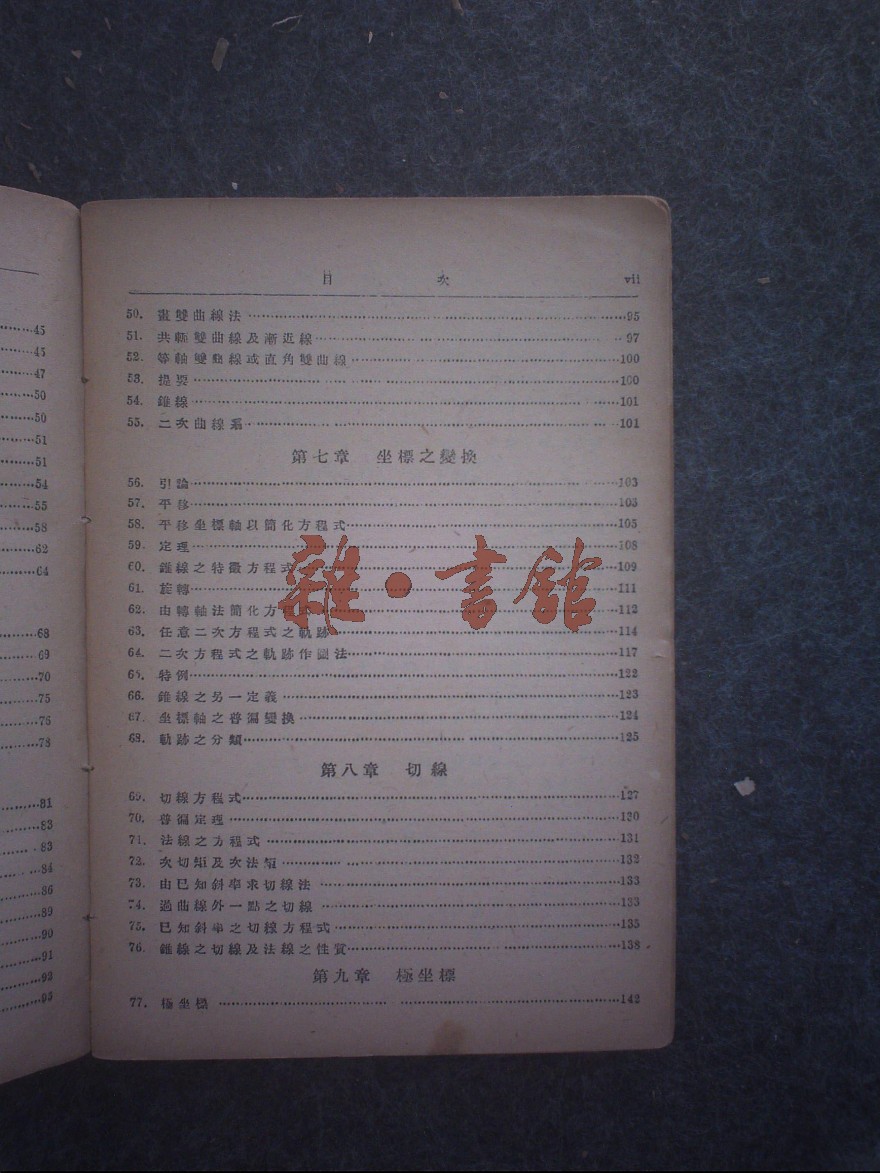 45
45
47
50
50
51
51
54
55
58
62
64
68
69
70
75
76
78
81
83
83
84
86
89
90
91
92
93
目 次 vii
50. 畫雙曲線法 95
51. 共軛雙曲線及漸近線 97
52. 等軸雙曲線或直角雙曲線 100
53. 提要 100
54. 錐線 101
55. 二次曲線系 101
第七章 坐標之變換
56. 引論 103
57. 平移 103
58. 平移坐標軸以簡化方程式 105
59. 定理 108
60. 錐線之特徵方程式 109
61. 旋轉 111
62. 由轉軸法簡化方程式 112
63. 任意二次方程式之軌跡 114
64. 二次方程式之軌跡作圖法 117
65. 特例 122
66. 錐線之另一定義 123
67. 坐標軸之普遍變換 124
68. 軌跡之分類 125
第八章 切線
69. 切線方程式 127
70. 普遍定理 130
71. 法線之方程式 131
72. 次切距及次法距 132
73. 由已知斜率求切線法 133
74. 過曲線外一點之切線 133
75. 已知斜率之切線方程式 135
76. 錐線之切線及法線之性質 138
第九章 極坐標
77. 極坐標 142
雜·書館